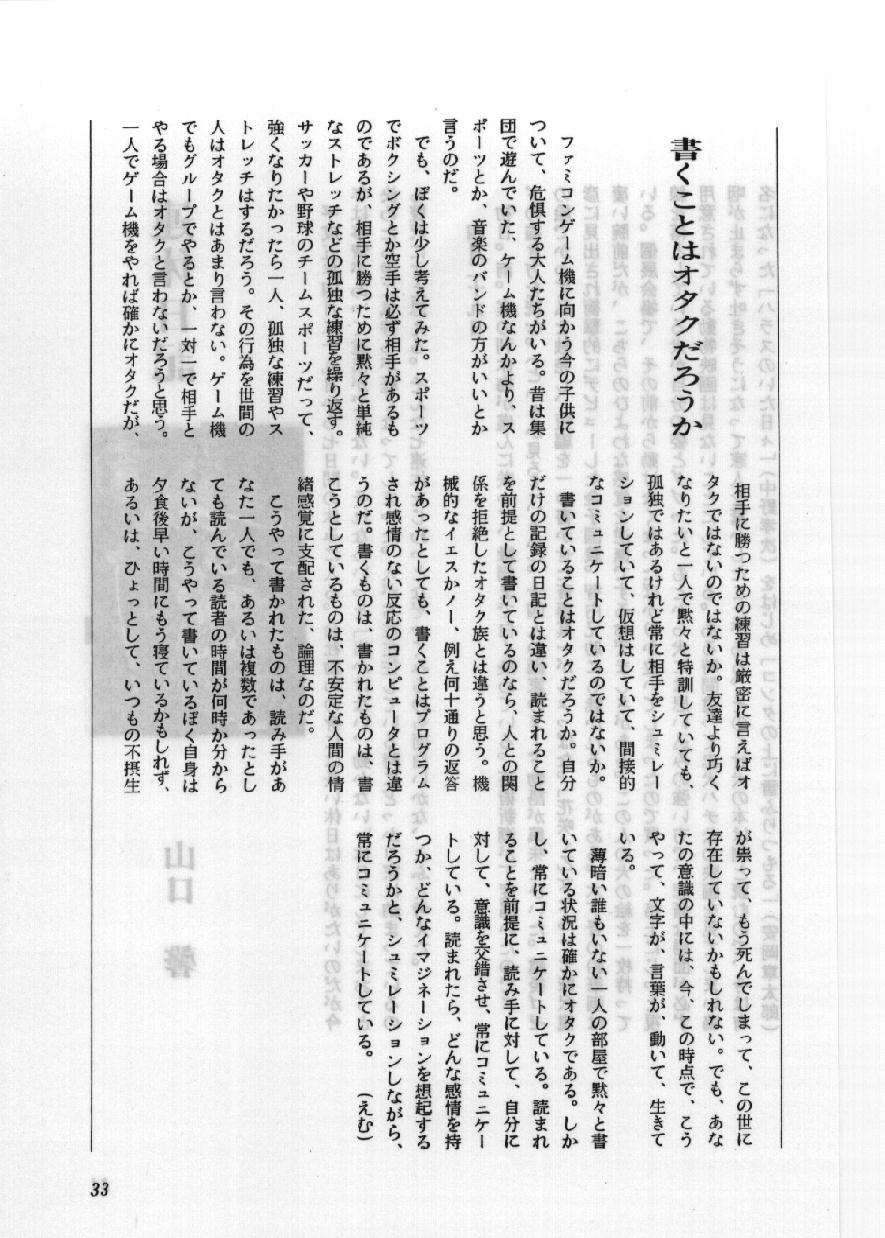 書くことはオタクだろうか
ファミコンゲーム機に向かう今の子供に
ついて、危惧する大人たちがいる。昔は集
団で遊んでいた、ゲーム機なんかより、ス
ポーツとか、音楽のバンドの方がいいとか
言うのだ。
でも、ぼくは少し考えてみた。スポーツ
でボクシングとか空手は必ず相手があるも
のであるが、相手に勝つために黙々と単純
なストレッチなどの孤独な練習を繰り返す。
サッカーや野球のチームスポーツだって、
強くなりたかったら一人、孤独な練習やス
トレッチはするだろう。その行為を世間の
人はオタクとはあまり言わない。ゲーム機
でもグループでやるとか、一対一で相手と
やる場合はオタクと言わないだろうと思う。
一人でゲーム機をやれば確かにオタクだが、
相手に勝つための練習は厳密に言えばオ
タクではないのではないか。友達より巧く
なりたいと一人で黙々と特訓していても、
孤独ではあるけれど常に相手をシュミレー
ションしていて、仮想はしていて、間接的
なコミュニケートしているのではないか。
書いていることはオタクだろうか。自分
だけの記録の日記とは違い、読まれること
を前提として書いているのなら、人との関
係を拒絶したオタク族とは違うと思う。機
械的なイエスかノー、例え何十通りの返答
があったとしても、書くことはプログラム
され感情のない反応のコンピュータとは違
うのだ。書くものは、書かれたものは、書
こうとしているものは、不安定な人間の情
緒感覚に支配された、論理なのだ。
こうやって書かれたものは、読み手があ
なた一人でも、あるいは複数であったとし
ても読んでいる読者の時間が何時か分から
ないが、こうやって書いているぼく自身は
夕食後早い時間にもう寝ているかもしれず、
あるいは、ひょっとして、いつもの不摂生
が祟って、もう死んでしまって、この世に
存在していないかもしれない。でも、あな
たの意識の中には、今、この時点で、こう
やって、文字が、言葉が、動いて、生きて
いる。
薄暗い誰もいない一人の部屋で黙々と書
いている状況は確かにオタクである。しか
し、常にコミュニケートしている。読まれ
ることを前提に、読み手に対して、自分に
対して、意識を交錯させ、常にコミュニケー
トしている。読まれたら、どんな感情を持
つか、どんなイマジネーションを想起する
だろうかと、シュミレーションしながら、
常にコミュニケートしている。　（えむ）
33